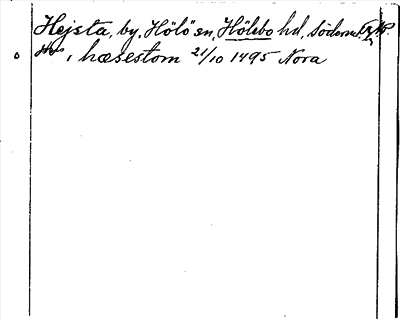 Hejsta, by, Hölö sn, Hölebo hd, Söderm.
i hæsestom 21/10 1495 Nora